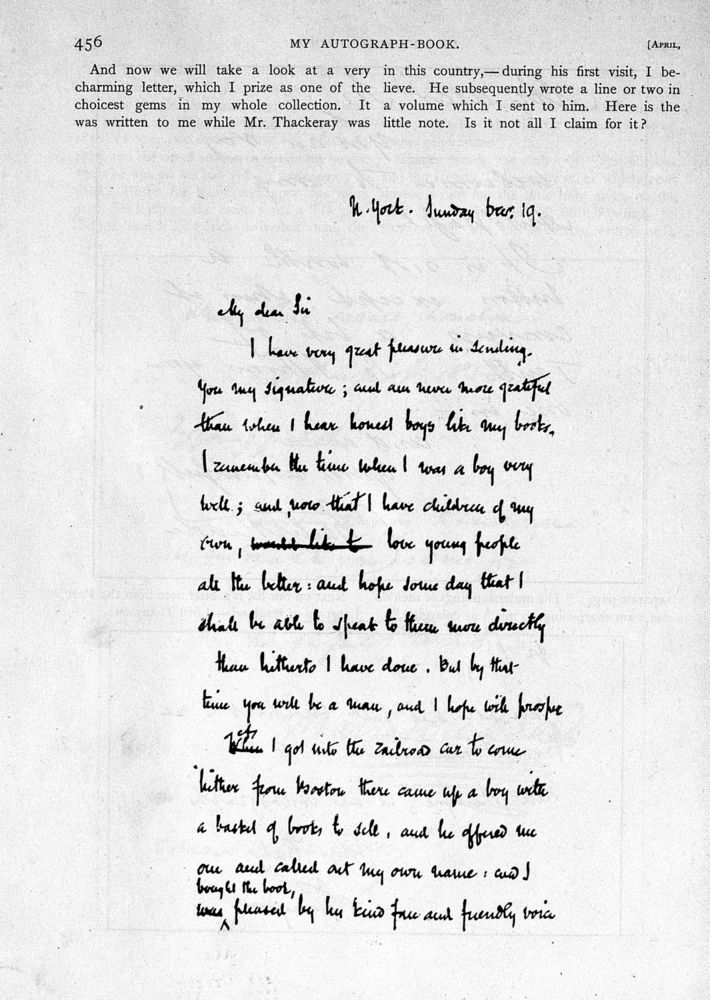 456 MY AUTOGRAPH-BOOK. [APRIL,
And now we will take a look at a very
charming letter, which I prize as one of the
choicest gems in my whole collection. It
was written to me while Mr. Thackeray was
in this country,—during his first visit, I be-
lieve. He subsequently wrote a line or two in
a volume which I sent to him. Here is the
little note. Is it not all I claim for it?
N. York. Sunday Dec. 19.
My dear Sir
I have very great pleasure in sending
you my signature; and am never more grateful
than when I hear honest boys like my books.
I remember the time when I was a boy very
well; and now that I have children of my
own, would like t love young people
all the better: and hope some day that I
shall be able to speak to them more directly
than hitherto I have done. But by that
time you will be a man, and I hope will prosper
When I got into the railroad car to come
hither from Boston there came up a boy with
a basket of books to sell, and he offered me
one and called out my own name: and I
bought the book,
was pleased by his kind face and friendly voice